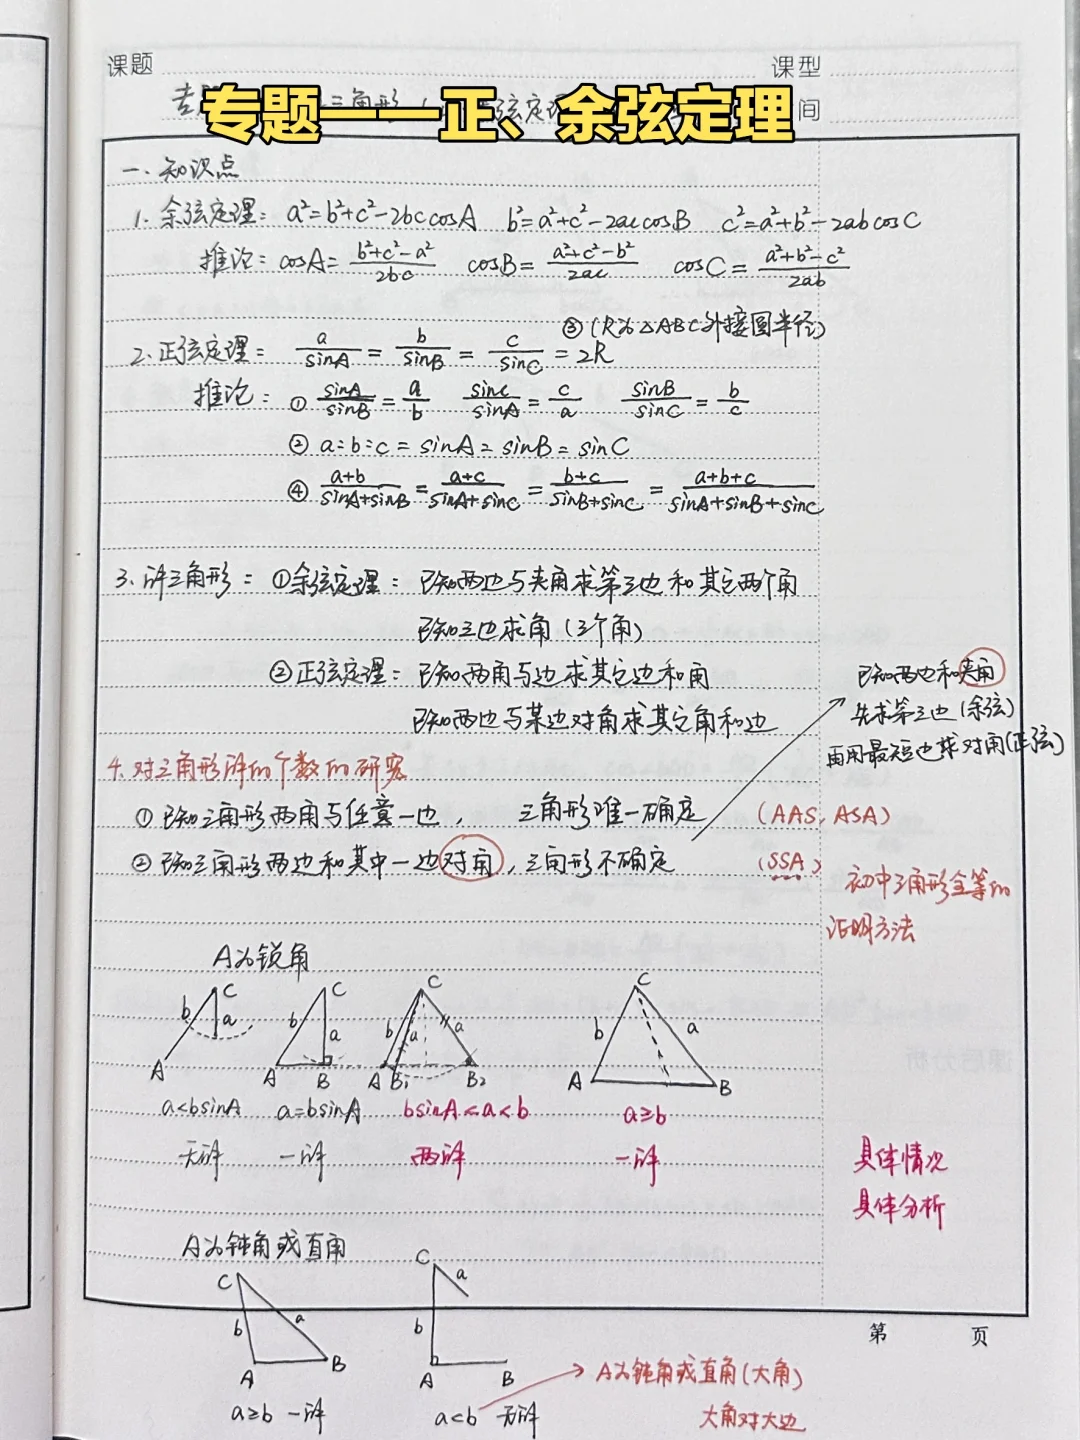 课题 课型
专题——正、余弦定理 间
一、知识点
1. 余弦定理: a²=b²+c²-2bccosA b²=a²+c²-2accosB c²=a²+b²-2abcosC
推论: cosA=(b²+c²-a²)/2bc cosB=(a²+c²-b²)/2ac cosC=(a²+b²-c²)/2ab
③(R为△ABC外接圆半径)
2. 正弦定理: a/sinA = b/sinB = c/sinC = 2R
推论: ① sinA/sinB = a/b sinC/sinA = c/a sinB/sinC = b/c
② a:b:c = sinA:sinB:sinC
④ (a+b)/(sinA+sinB) = (a+c)/(sinA+sinC) = (b+c)/(sinB+sinC) = (a+b+c)/(sinA+sinB+sinC)
3. 解三角形: ①余弦定理: 已知两边与夹角求第三边和其它两个角
已知三边求角(三个角)
②正弦定理: 已知两角与边求其它边和角
已知两边与某边对角求其它角和边
已知两边和夹角
先求第三边(余弦)
再用最短边求对角(正弦)
4. 对三角形解的个数的研究
① 已知三角形两角与任意一边, 三角形唯一确定 (AAS, ASA)
② 已知三角形两边和其中一边对角, 三角形不确定 (SSA)
初中三角形全等的
证明方法
A为锐角
C C C C
b a b a b a b a
A A B A B₁ B₂ A B
a<bsinA a=bsinA bsinA<a<b a≥b
无解 一解 两解 一解
具体情况
具体分析
A为钝角或直角
C a b A B
C a b A B
a≥b 一解 a<b 无解
A为钝角或直角(大角)
大角对大边
第 页